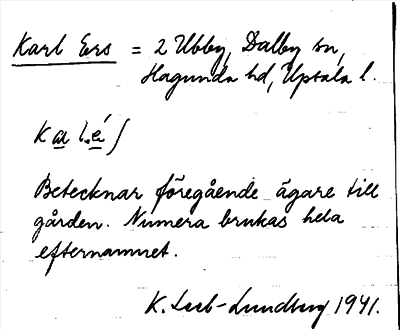 Karl Ers = 2 Ubby, Dalby sn,
Hagunda hd, Upsala l.
Betecknar föregående ägare till
gården. Numera brukas hela
efternamnet.
K. Leeb-Lundberg 1941.